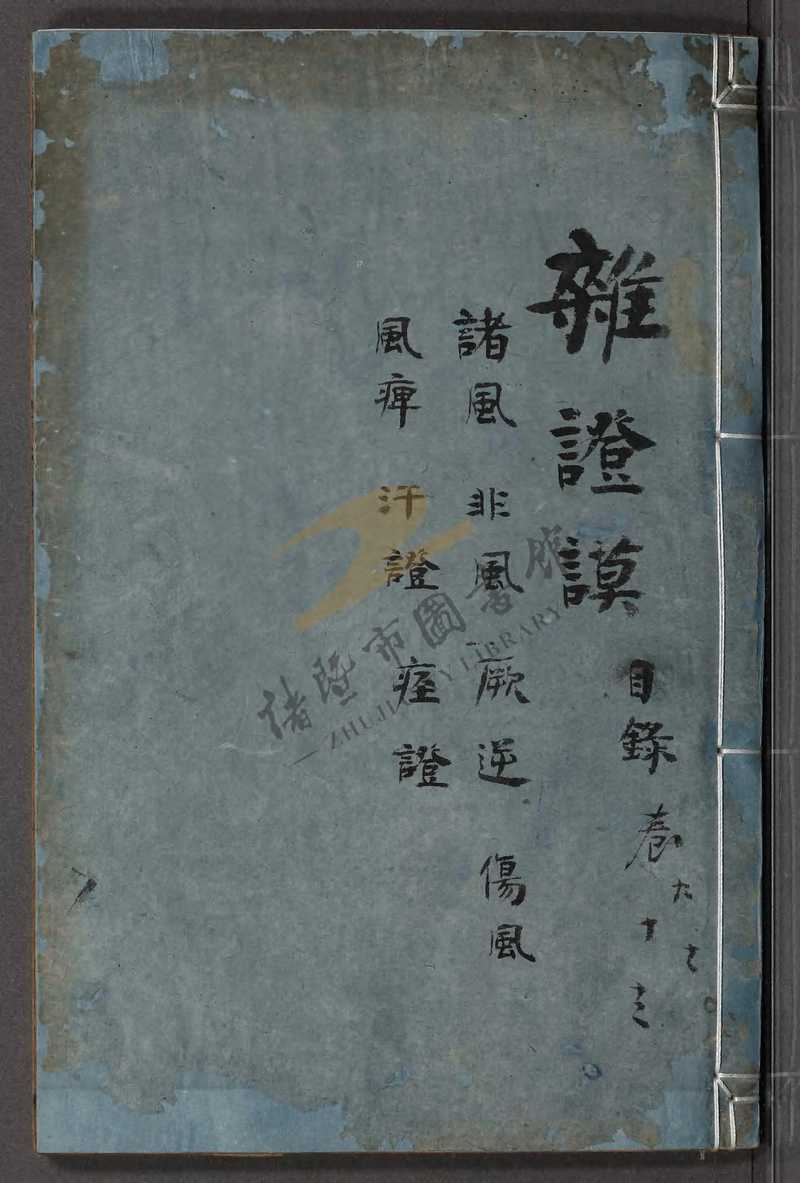 雜證謨
目錄 卷九之十三
諸風 非風 厥逆 傷風
風痺 汗證 痓證
諸暨市圖書館
ZHUJI CITY LIBRARY